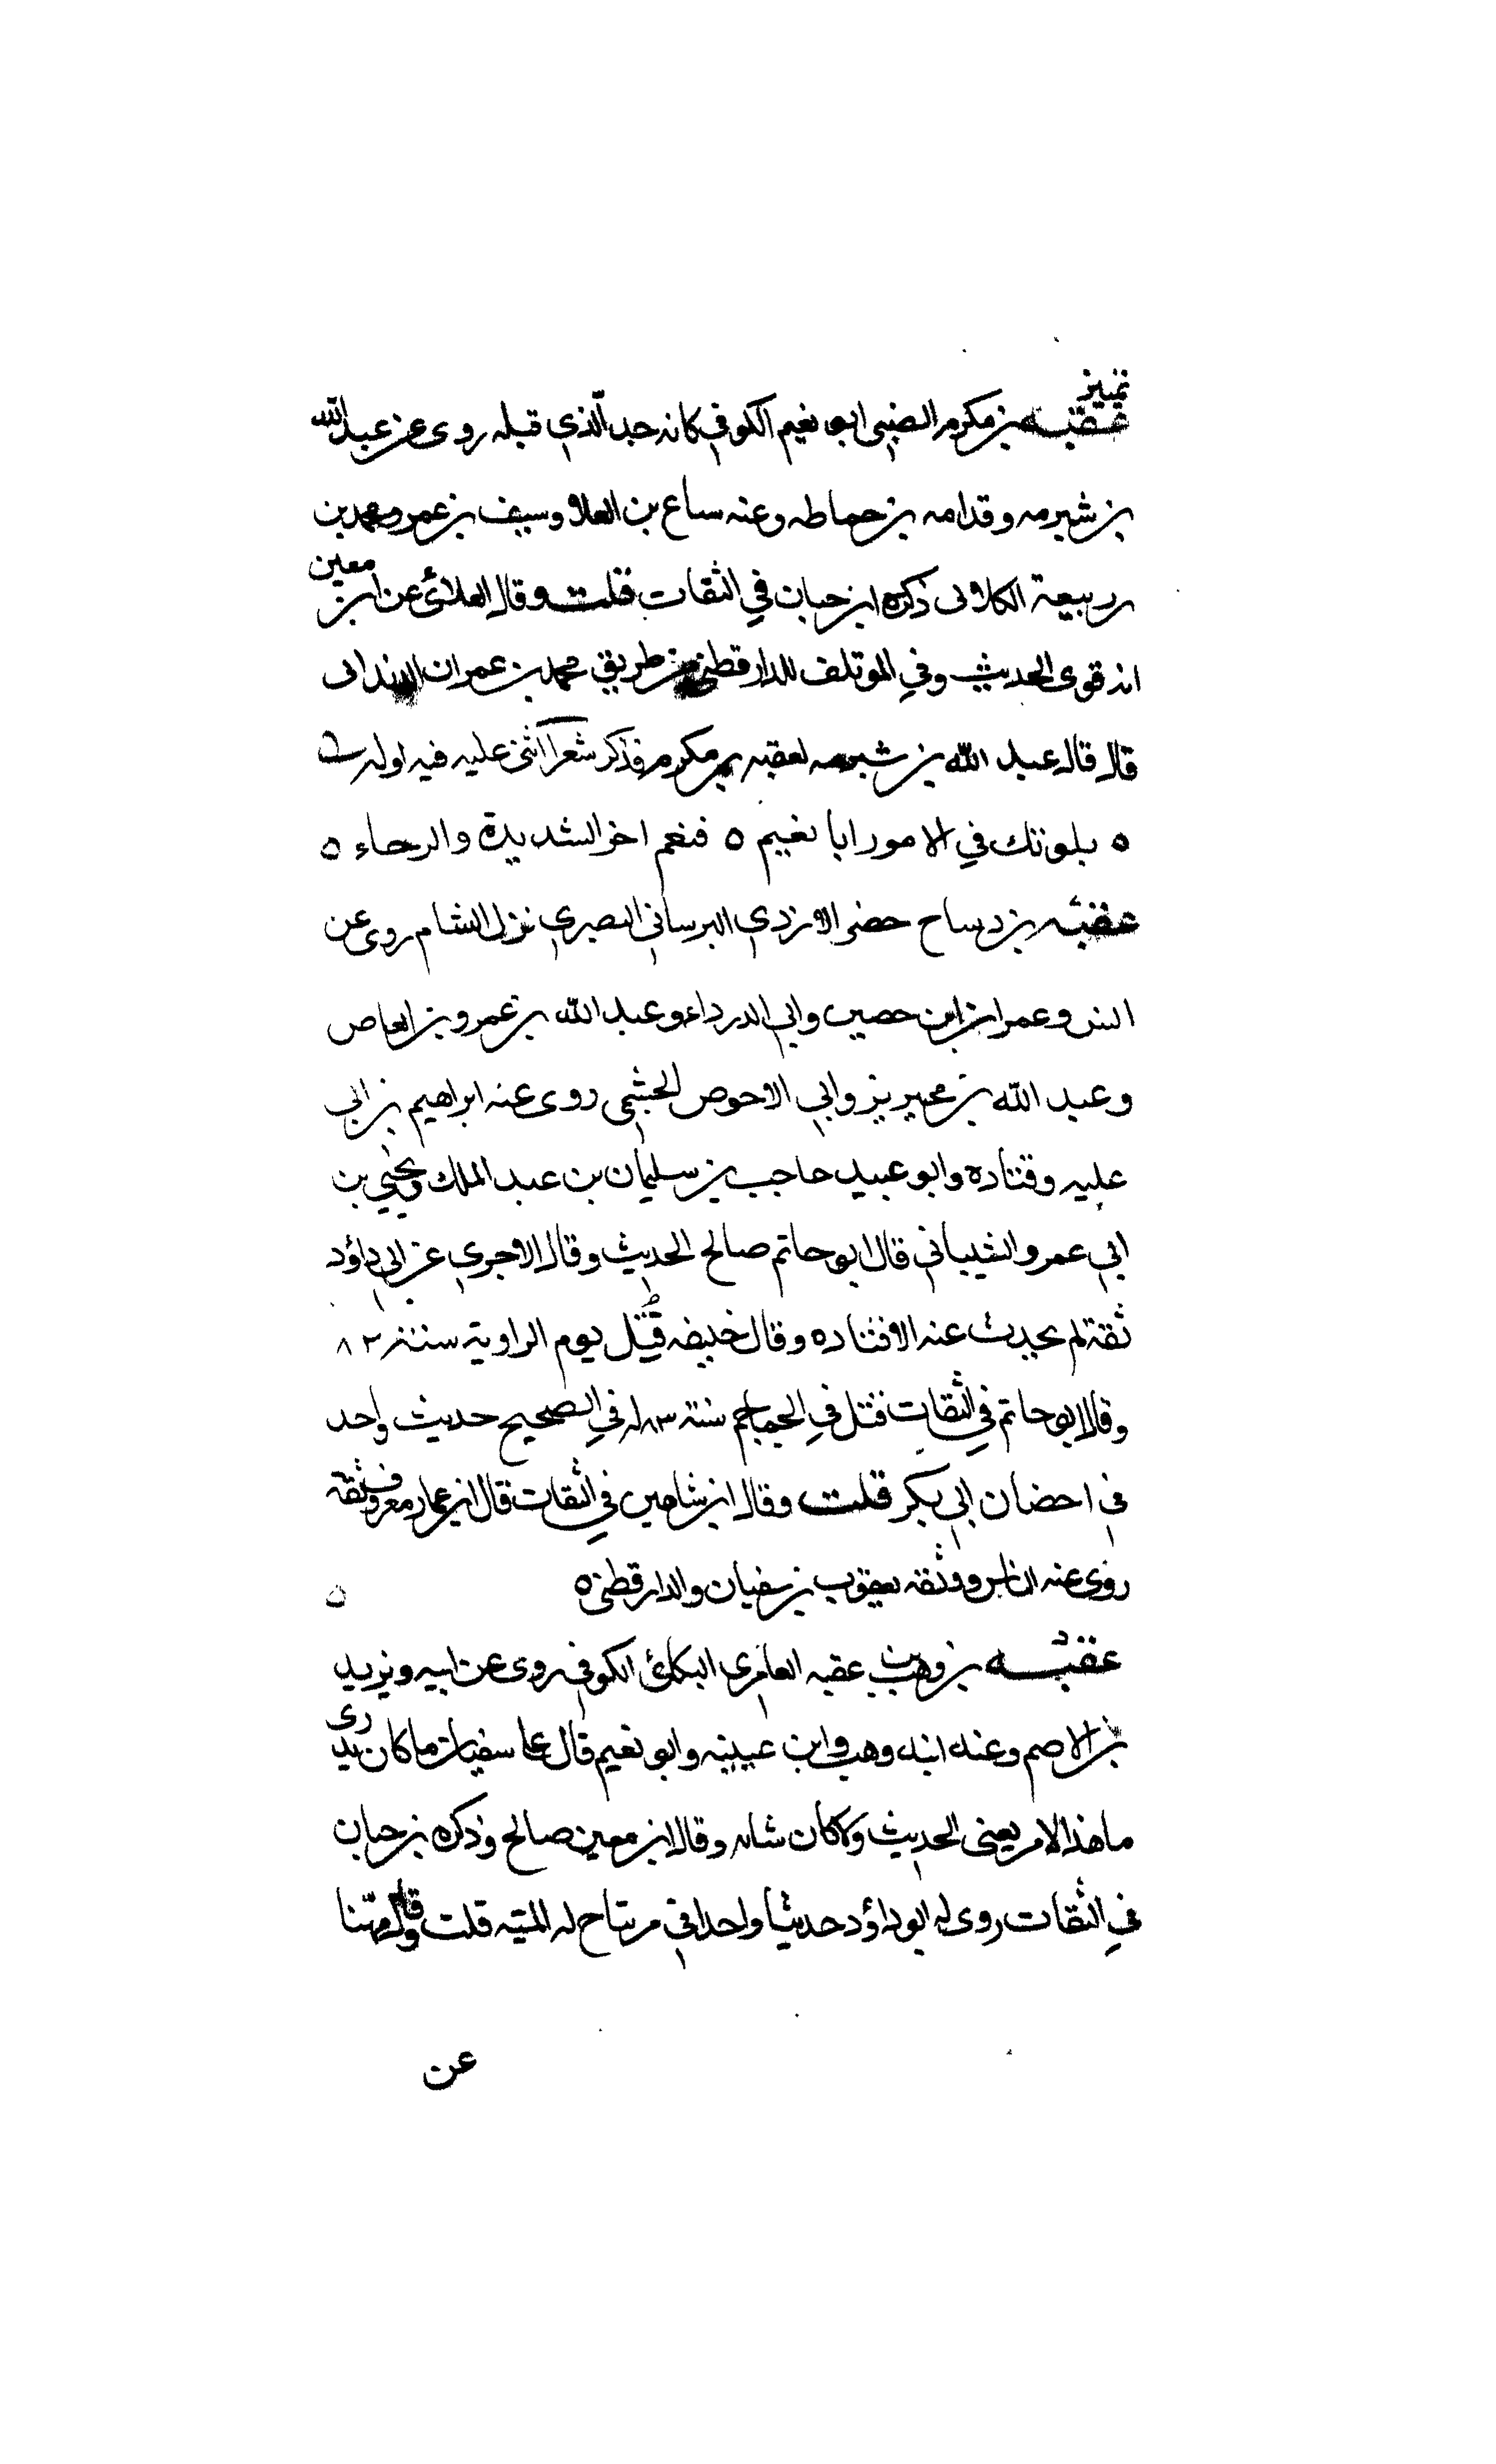 تمييز
عقبه بن مكرم الضبي ابو نعيم الكوفي كانه جد الذي قبله روى عن عبد الله
بن شبرمه وقدامه بن حماطه وعنه سباع بن العلاو سيف بن عمر ومحمد بن
ربيعة الكلابى ذكره ابن حبان في الثقات قلت وقال العلائي عن ابن معين
انه قوى الحديث وفي الموتلف للدارقطني من طريق محمد بن عمران
قال قال عبد الله بن شبرمه لعقبه بن مكرم فذكر شعرا اثنى عليه فيه اوله
ه بلوتك في الامور ابا نعيم ه فنعم اخر الشديدة والرخاء ه
عقبه بن وساح حضى الازدي البرساني البصري نزل الشام روى عن
انس وعمران ابن حصين وابي الدرداء وعبد الله بن عمرو بن العاص
وعبد الله بن محيريز وابي الاحوص الجشمي روى عنه ابراهيم بن ابي
عليه وقتاده وابو عبيد حاجب بن سليمان بن عبد الملك ويحيي بن
ابي عمرو الشيباني قال ابو حاتم صالح الحديث وقال الاجري عن ابي داؤد
ثقة لم يحدث عنه الا قتاده وقال خليفه قُتِل يوم الزاوية سنته ٨٢
وقال ابو حاتم في الثقات قتل في الجماجم سنته ٨٣ له في الصحيح حديث واحد
في احضان ابي بكر قلت وقال ابن شاهين في الثقات قال ابن عمار معروف ثقة
روى عنه الناس ووثقه يعقوب بن سفيان والدارقطني ه ه
عقبه بن وهب بن عقبه العامري البكائي الكوفي روى عن ابيه ويزيد
بن الاصم وعنه ابنه وهب وابن عيينه وابو نعيم قال عا سفيان ما كان يدرى
ما هذا الامر يعنى الحديث ولا كان شانه وقال ابن معين صالح وذكره بن حبان
في الثقات روى له ابو داؤد حديثا واحدا في مر يتاح له الميته قلت وقال مهنا
عن